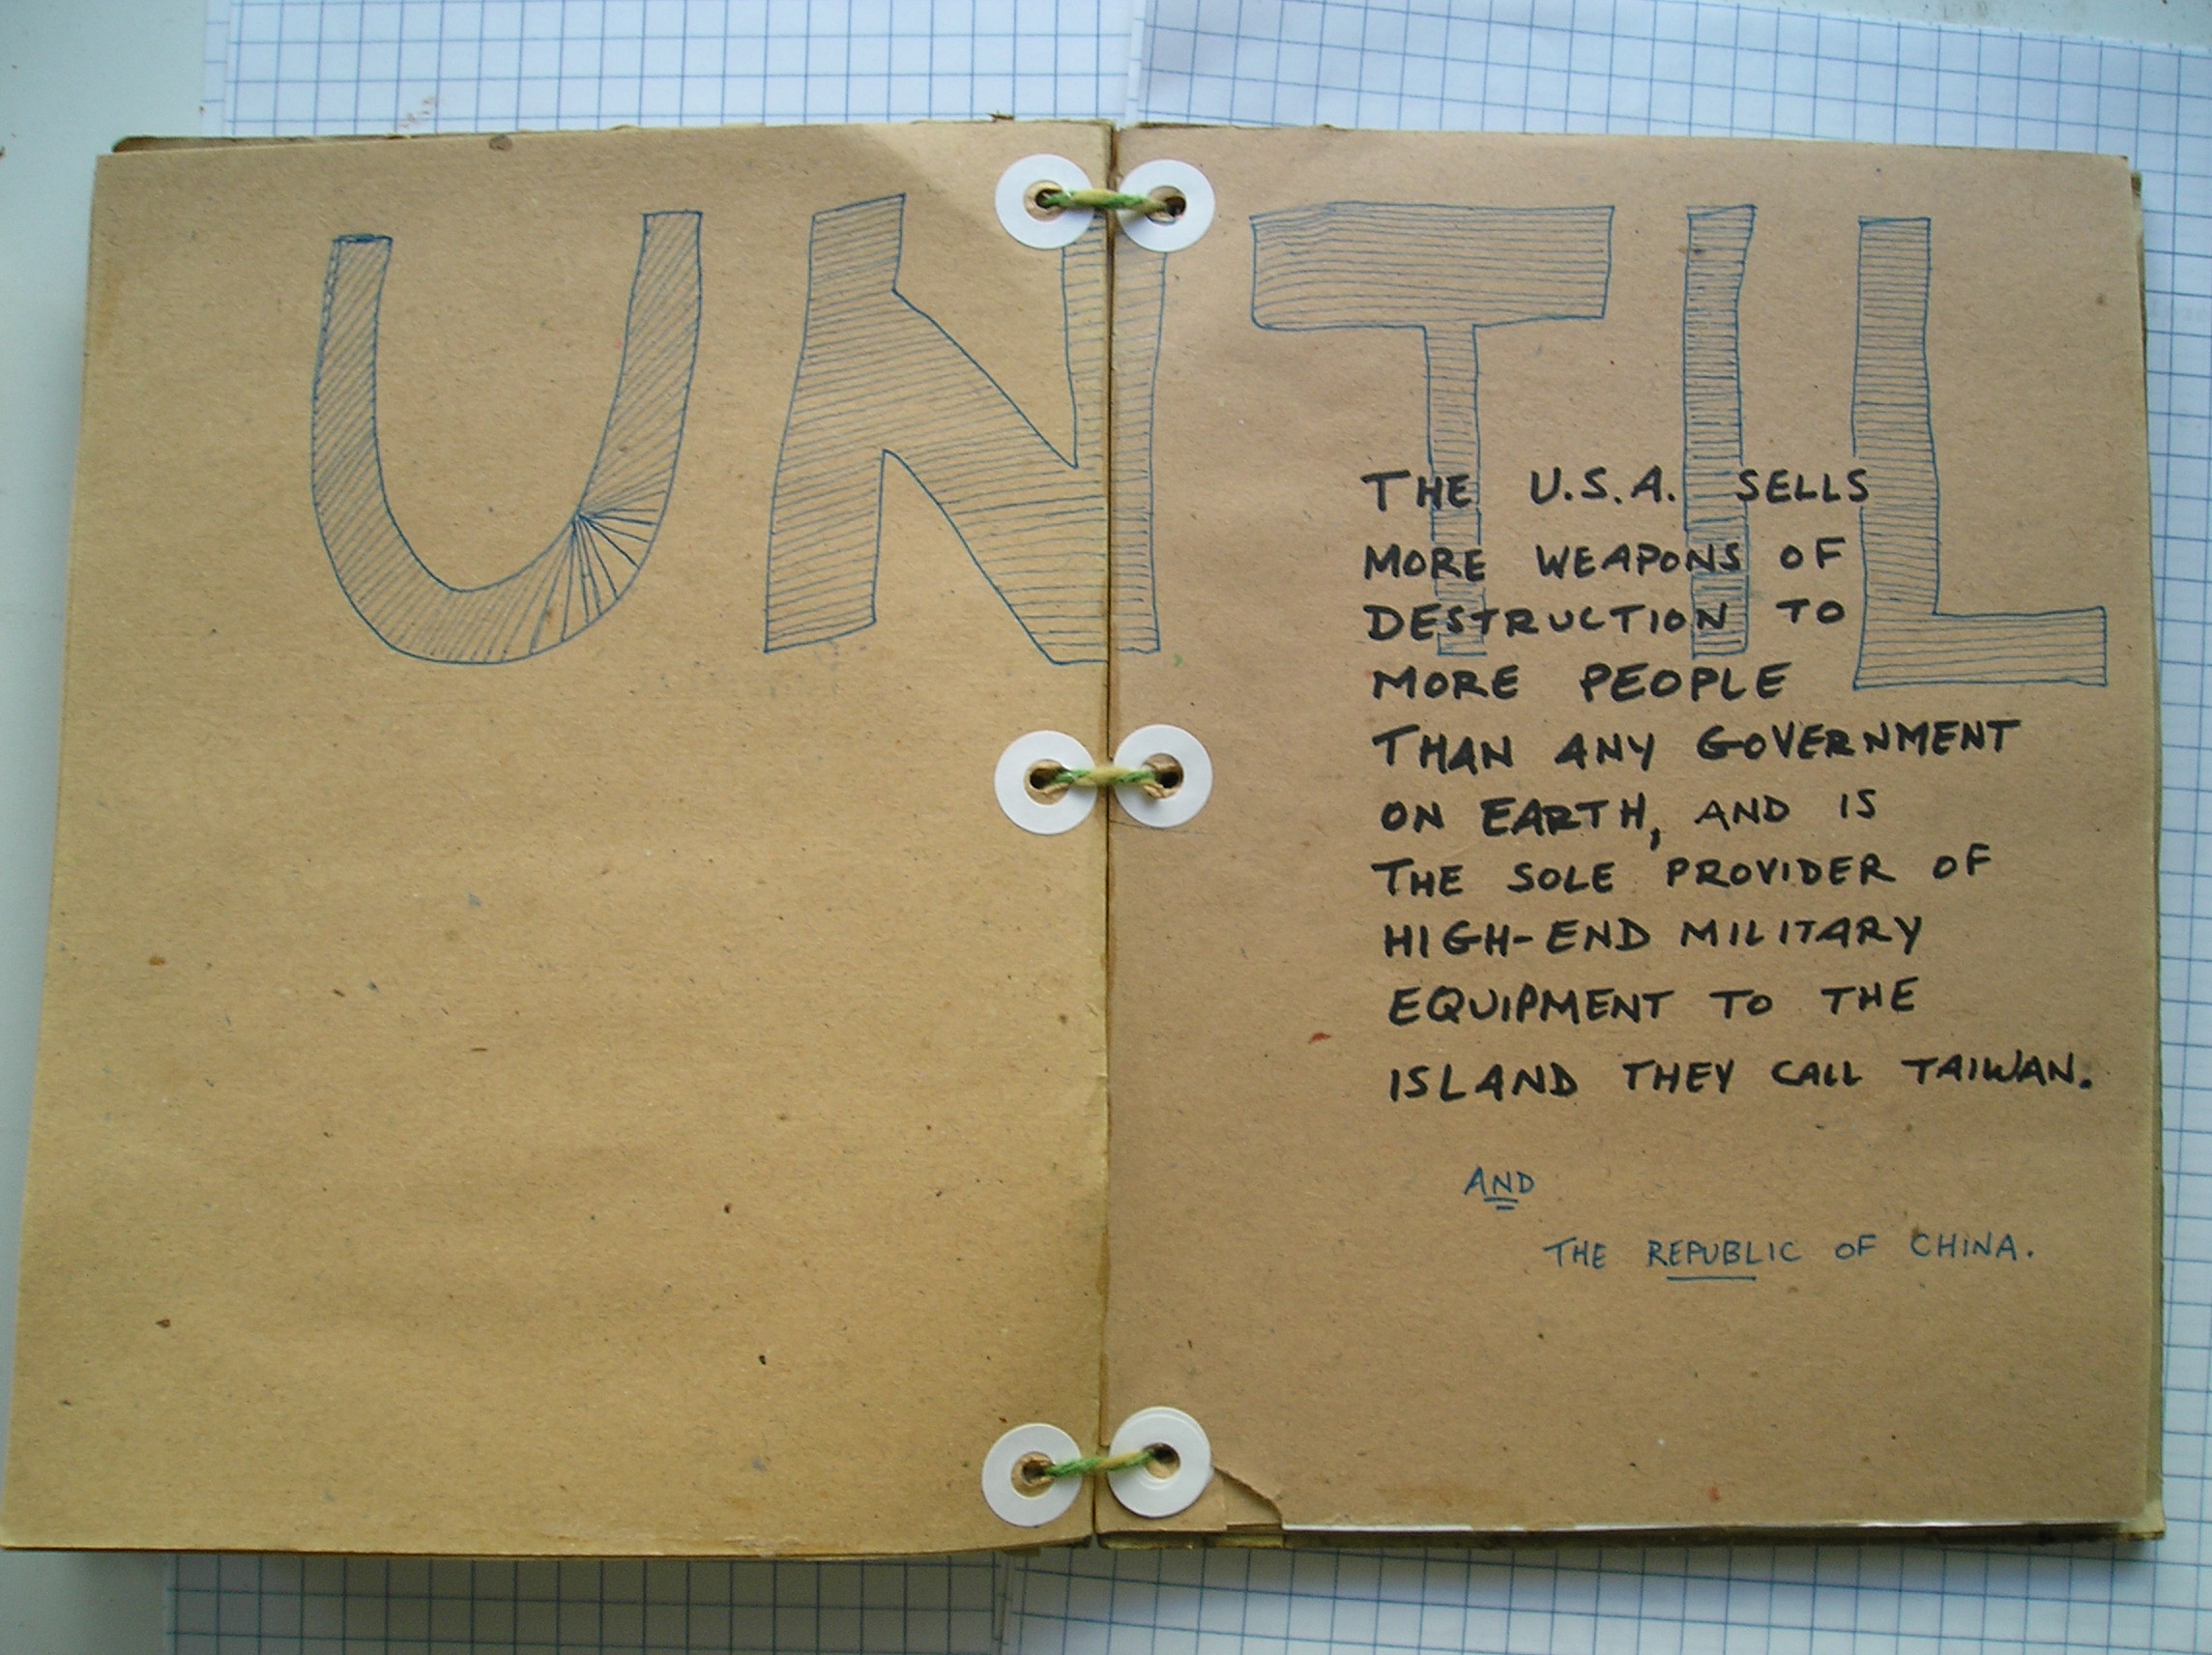 UNTIL
THE U.S.A. SELLS
MORE WEAPONS OF
DESTRUCTION TO
MORE PEOPLE
THAN ANY GOVERNMENT
ON EARTH, AND IS
THE SOLE PROVIDER OF
HIGH-END MILITARY
EQUIPMENT TO THE
ISLAND THEY CALL TAIWAN.
AND
THE REPUBLIC OF CHINA.